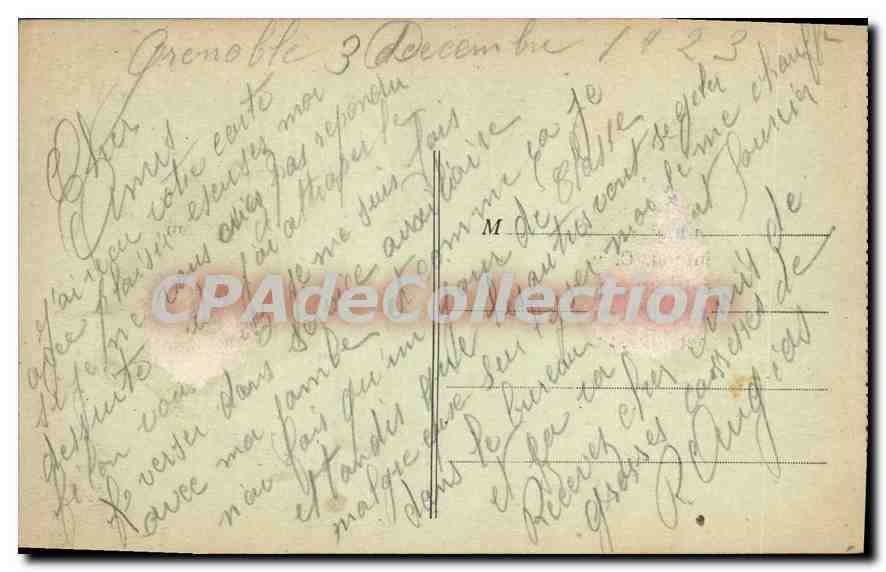 Grenoble 3 Decembre 1923
Cher
Amis
J'ai reçu votre carte
avec plaisir escusez moi
si je ne vous ai pas repondu
dessuite j'ai attraper le
filon vous je me suis fais
verser dans service auxiliaire
avec ma jambe et comme ca je
n'ai fais qu'un jour de classe
et tandis que les autres vont se geler
malgré eux moi je me chauffe
dans le bureau
et fa ca
Recevez cher amis de
grosses caresses de
R. Angles
M
CPAdeCollection